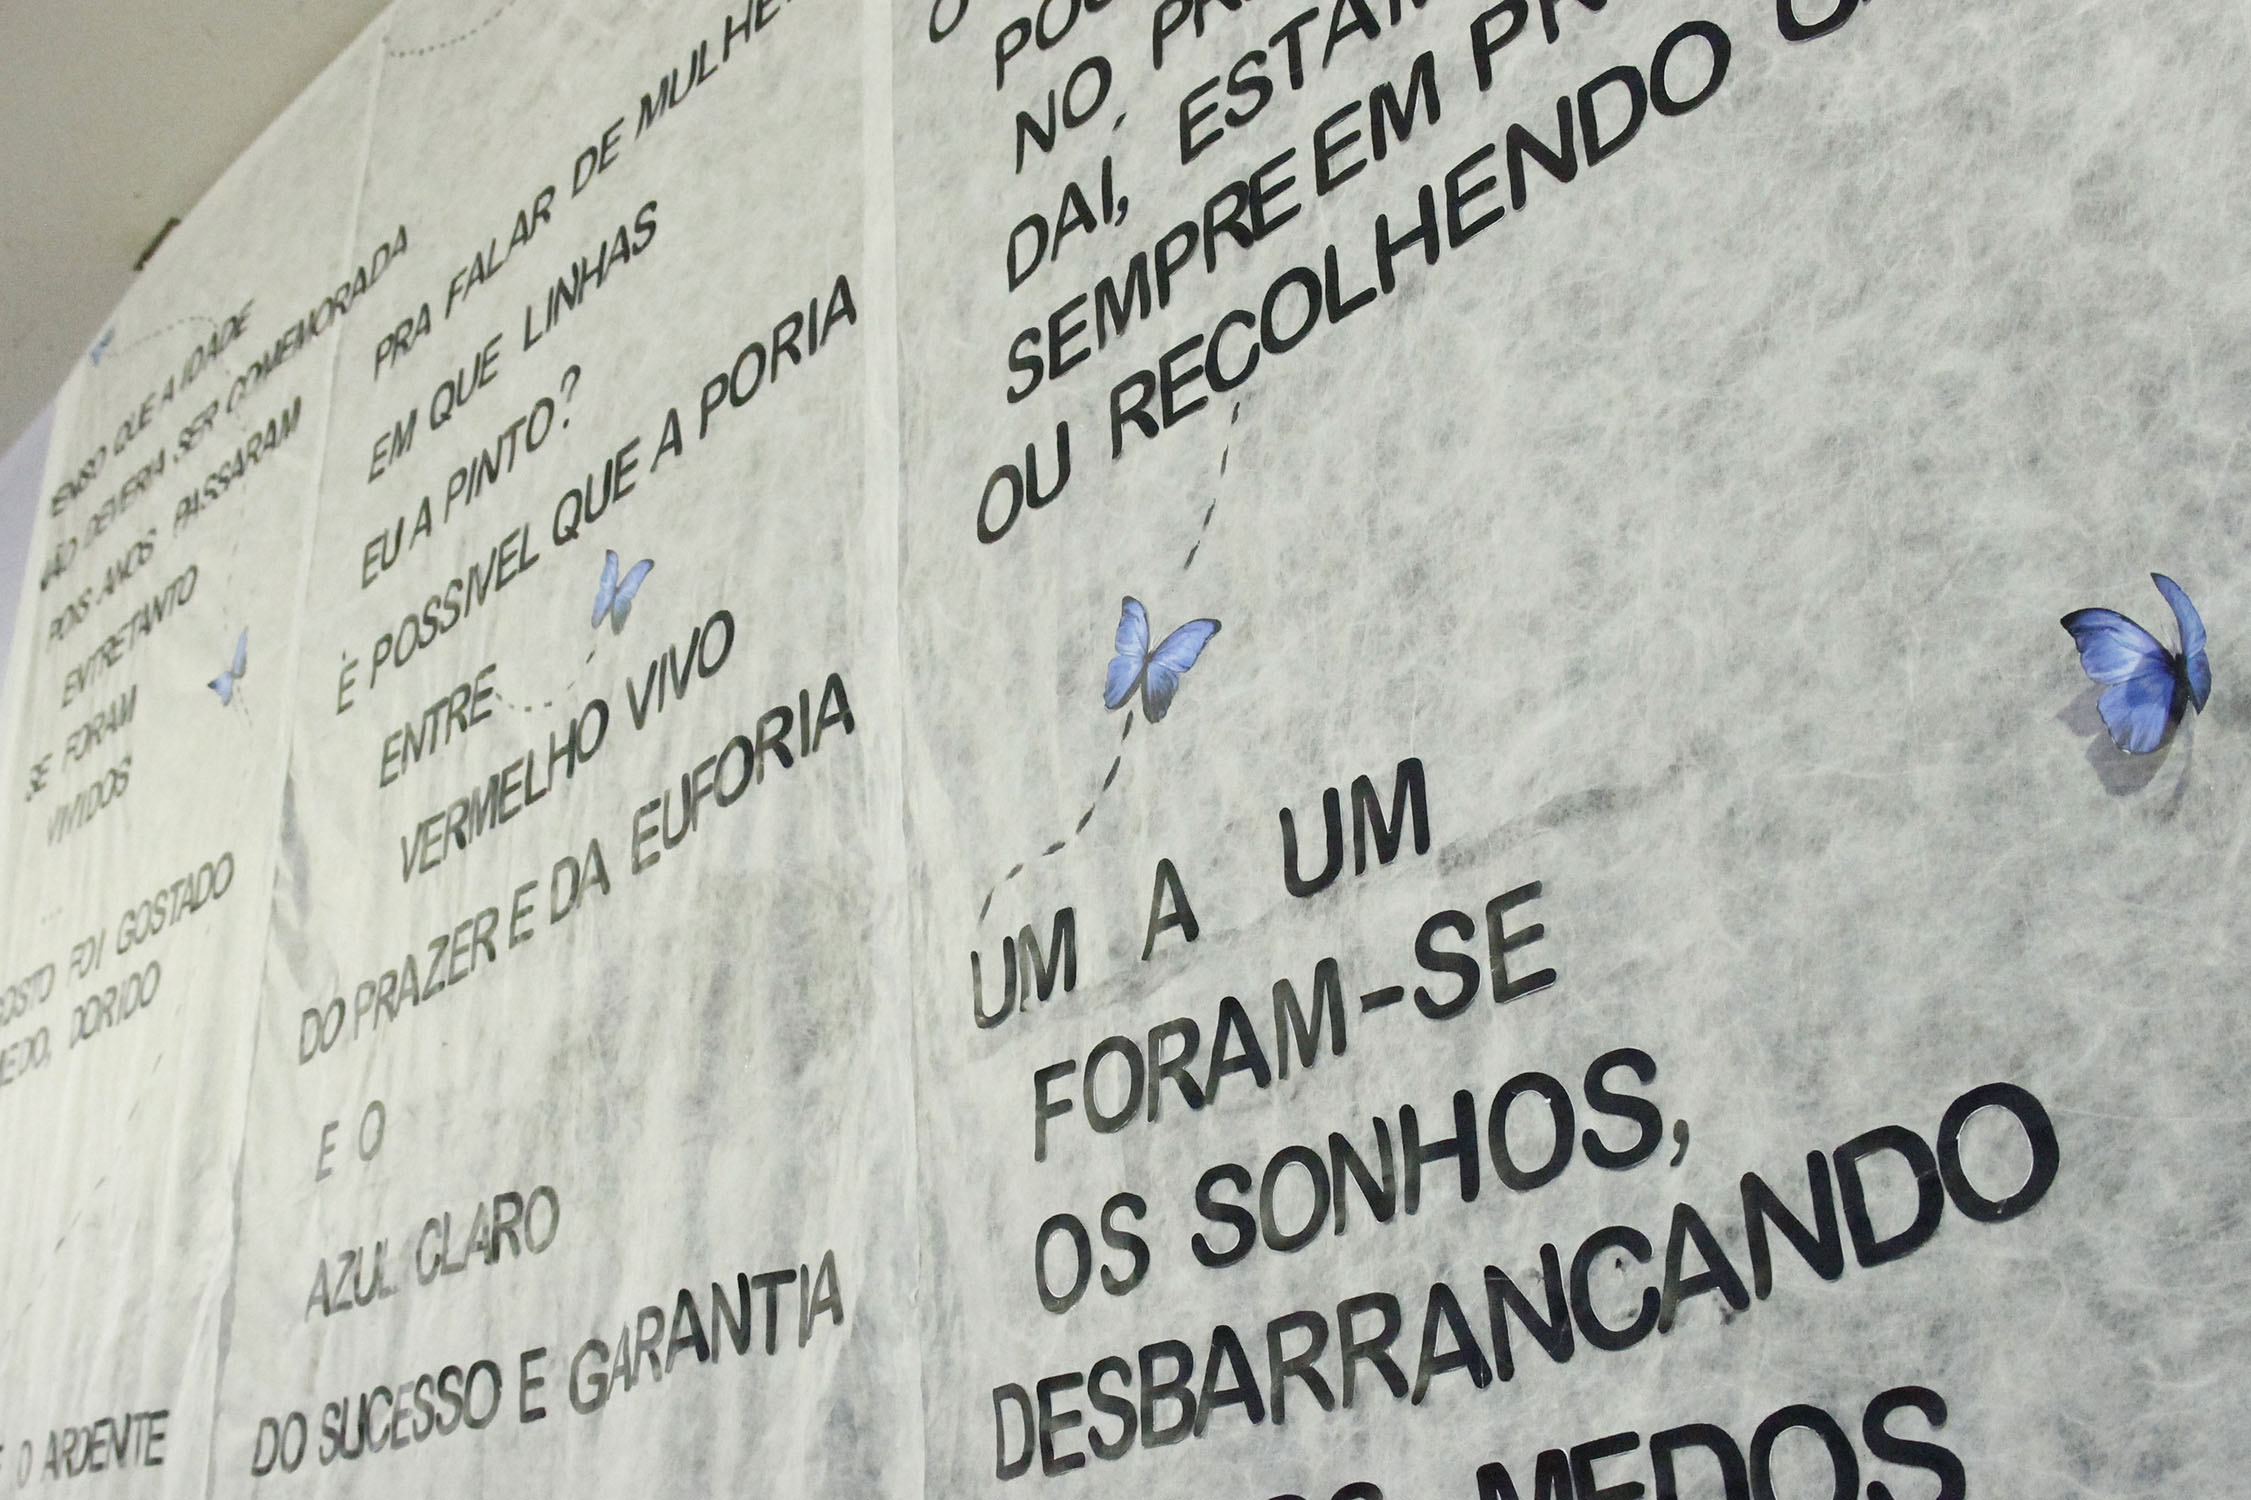 QUE A IDADE
NÃO DEVERIA SER COMEMORADA
POIS ANOS PASSARAM
ENTRETANTO
SE FORAM
VIVIDOS
...
FOI GOSTADO
DORIDO
O ARDENTE
PRA FALAR DE
EM QUE LINHAS
EU A PINTO?
É POSSIVEL QUE A PORIA
ENTRE
VERMELHO VIVO
DO PRAZER E DA EUFORIA
E O
AZUL CLARO
DO SUCESSO E GARANTIA
O
NO
DAÍ,
SEMPRE EM
OU RECOLHENDO
UM A UM
FORAM-SE
OS SONHOS,
DESBARRANCANDO
MEDOS